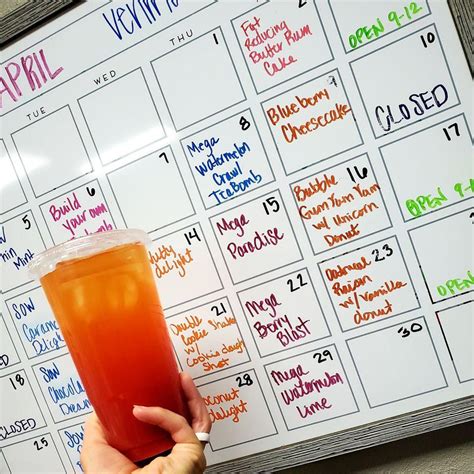 APRIL
TUE
WED
THU
1
Fat
Reducing
Butter Rum
Cake
OPEN 9-12
5
Mint
6
Build
your own
7
8
Mega
Watermelon
Crawl
Tea Bomb
Blueberry
Cheesecake
10
CLOSED
SOW
14
delight
15
Mega
Paradise
16
Bubble
Gum Yum Yum
w/ Unicorn
Donut
OPEN 9-
18
CLOSED
SOW
Double
Cookie Shake
w/
Cookie dough
Shot
22
Mega
Berry
Blast
23
Oatmeal
Raisin
w/ Vanilla
donut
OPEN
25
SOW
28
delight
29
Mega
Watermelon
Lime
30